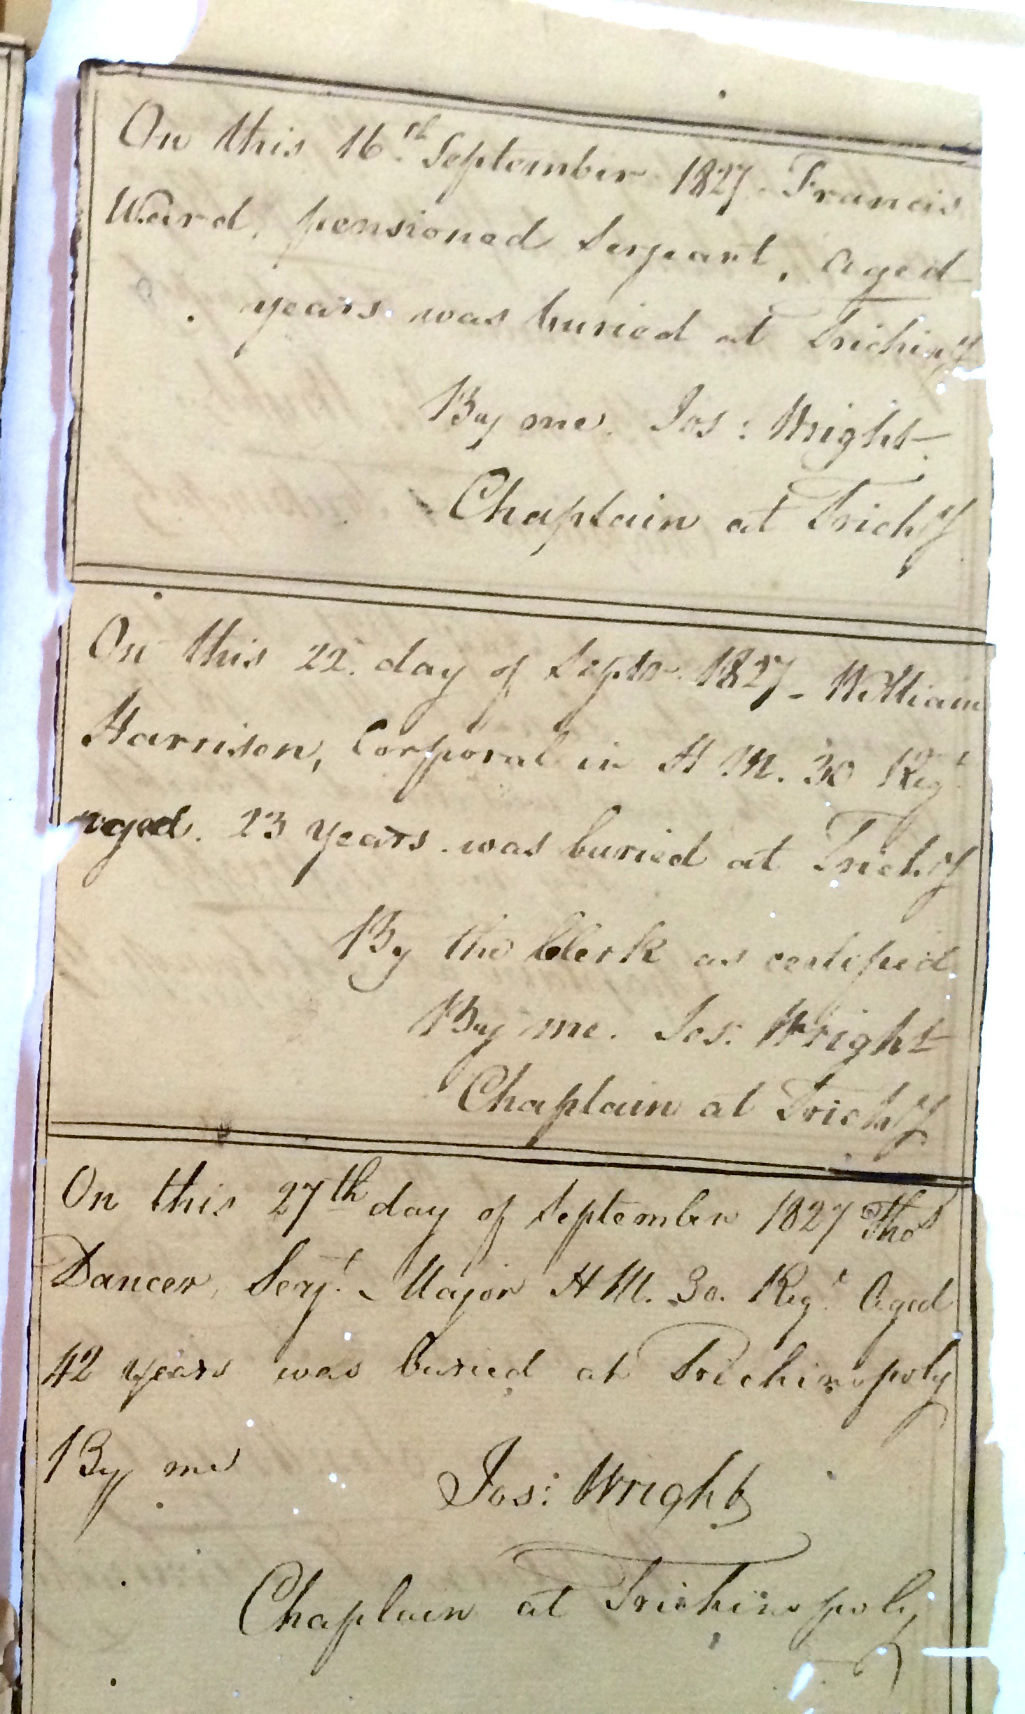 On this 16th September 1827 - Francis
Ward, pensioned Serjeant, aged
years was buried at Trichin^y
By me. Jos: Wright.
Chaplain at Trich^y
On this 22. day of Septr. 1827 - William
Harrison, Corporal in H M. 30 Reg^t
aged. 23 years. was buried at Trich^y
By the Clerk as certified
By me. Jos: Wright
Chaplain at Trich^y
On this 27th day of September 1827 Thos
Dancer, Serj^t. Major H M. 30. Reg^t. Aged
42 years was buried at Trichinopoly
By me Jos: Wright
Chaplain at Trichinopoly